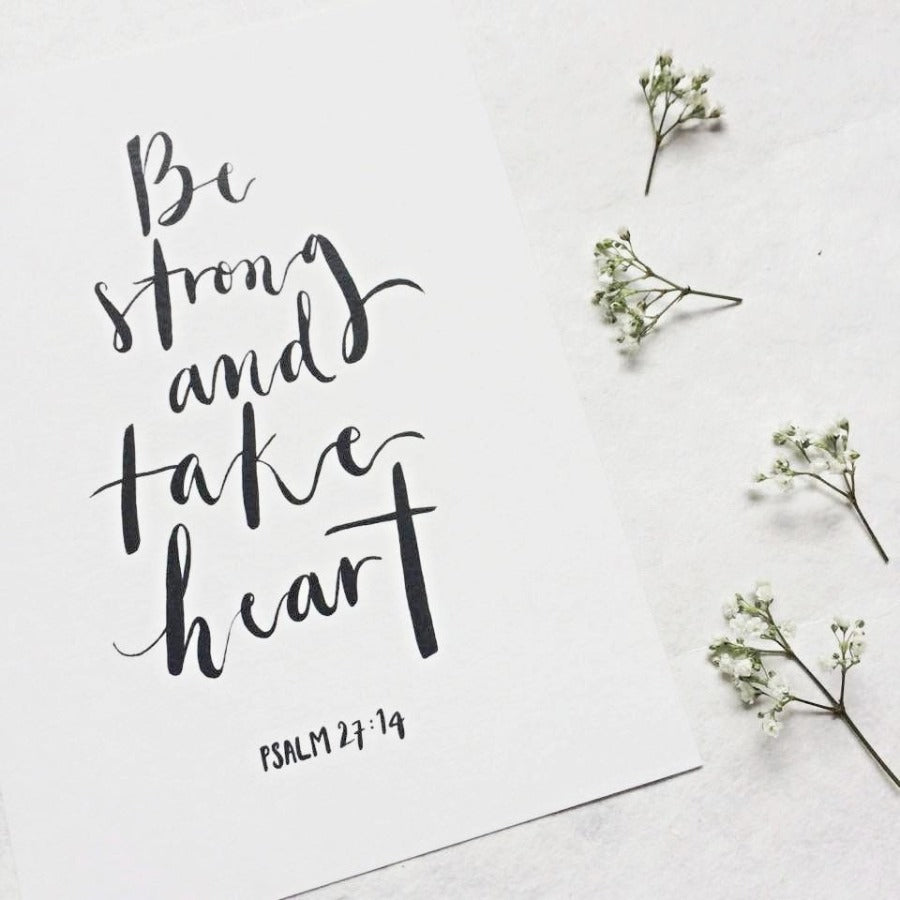 Be
strong
and
take
heart
PSALM 27:14